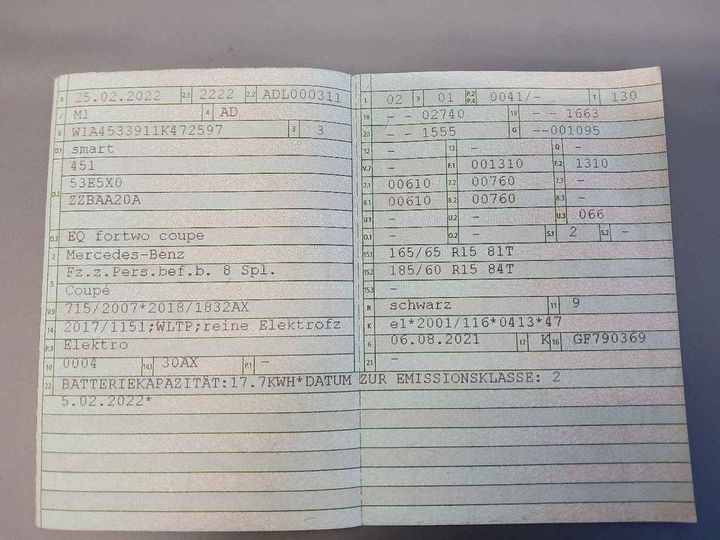 B 25.02.2022 2.1 2222 2.2 ADL000311
J M1 4 AD
E W1A4533911K472597 3 3
D.1 smart
451
D.2 53E5X0
ZZBAA20A
D.3 EQ fortwo coupe
2 Mercedes-Benz
5 Fz.z.Pers.bef.b. 8 Spl.
Coupé
V.9 715/2007*2018/1832AX
14 2017/1151;WLTP;reine Elektrofz
P.3 Elektro
10 0004 14.1 30AX P.1 -
22 BATTERIEKAPAZITÄT:17.7KWH*DATUM ZUR EMISSIONSKLASSE: 2
5.02.2022*
L 02 9 01 P.2 P.4 0041/- T 130
18 - - 02740 19 - - 1663
20 - - 1555 G --001095
12 - 13 - Q -
V.7 - F.1 001310 F.2 1310
7.1 00610 7.2 00760 7.3 -
8.1 00610 8.2 00760 8.3 -
U.1 - U.2 - U.3 066
O.1 - O.2 - S.1 2 S.2 -
15.1 165/65 R15 81T
15.2 185/60 R15 84T
15.3 -
R schwarz 11 9
K e1*2001/116*0413*47
6 06.08.2021 17 K 16 GF790369
21 -